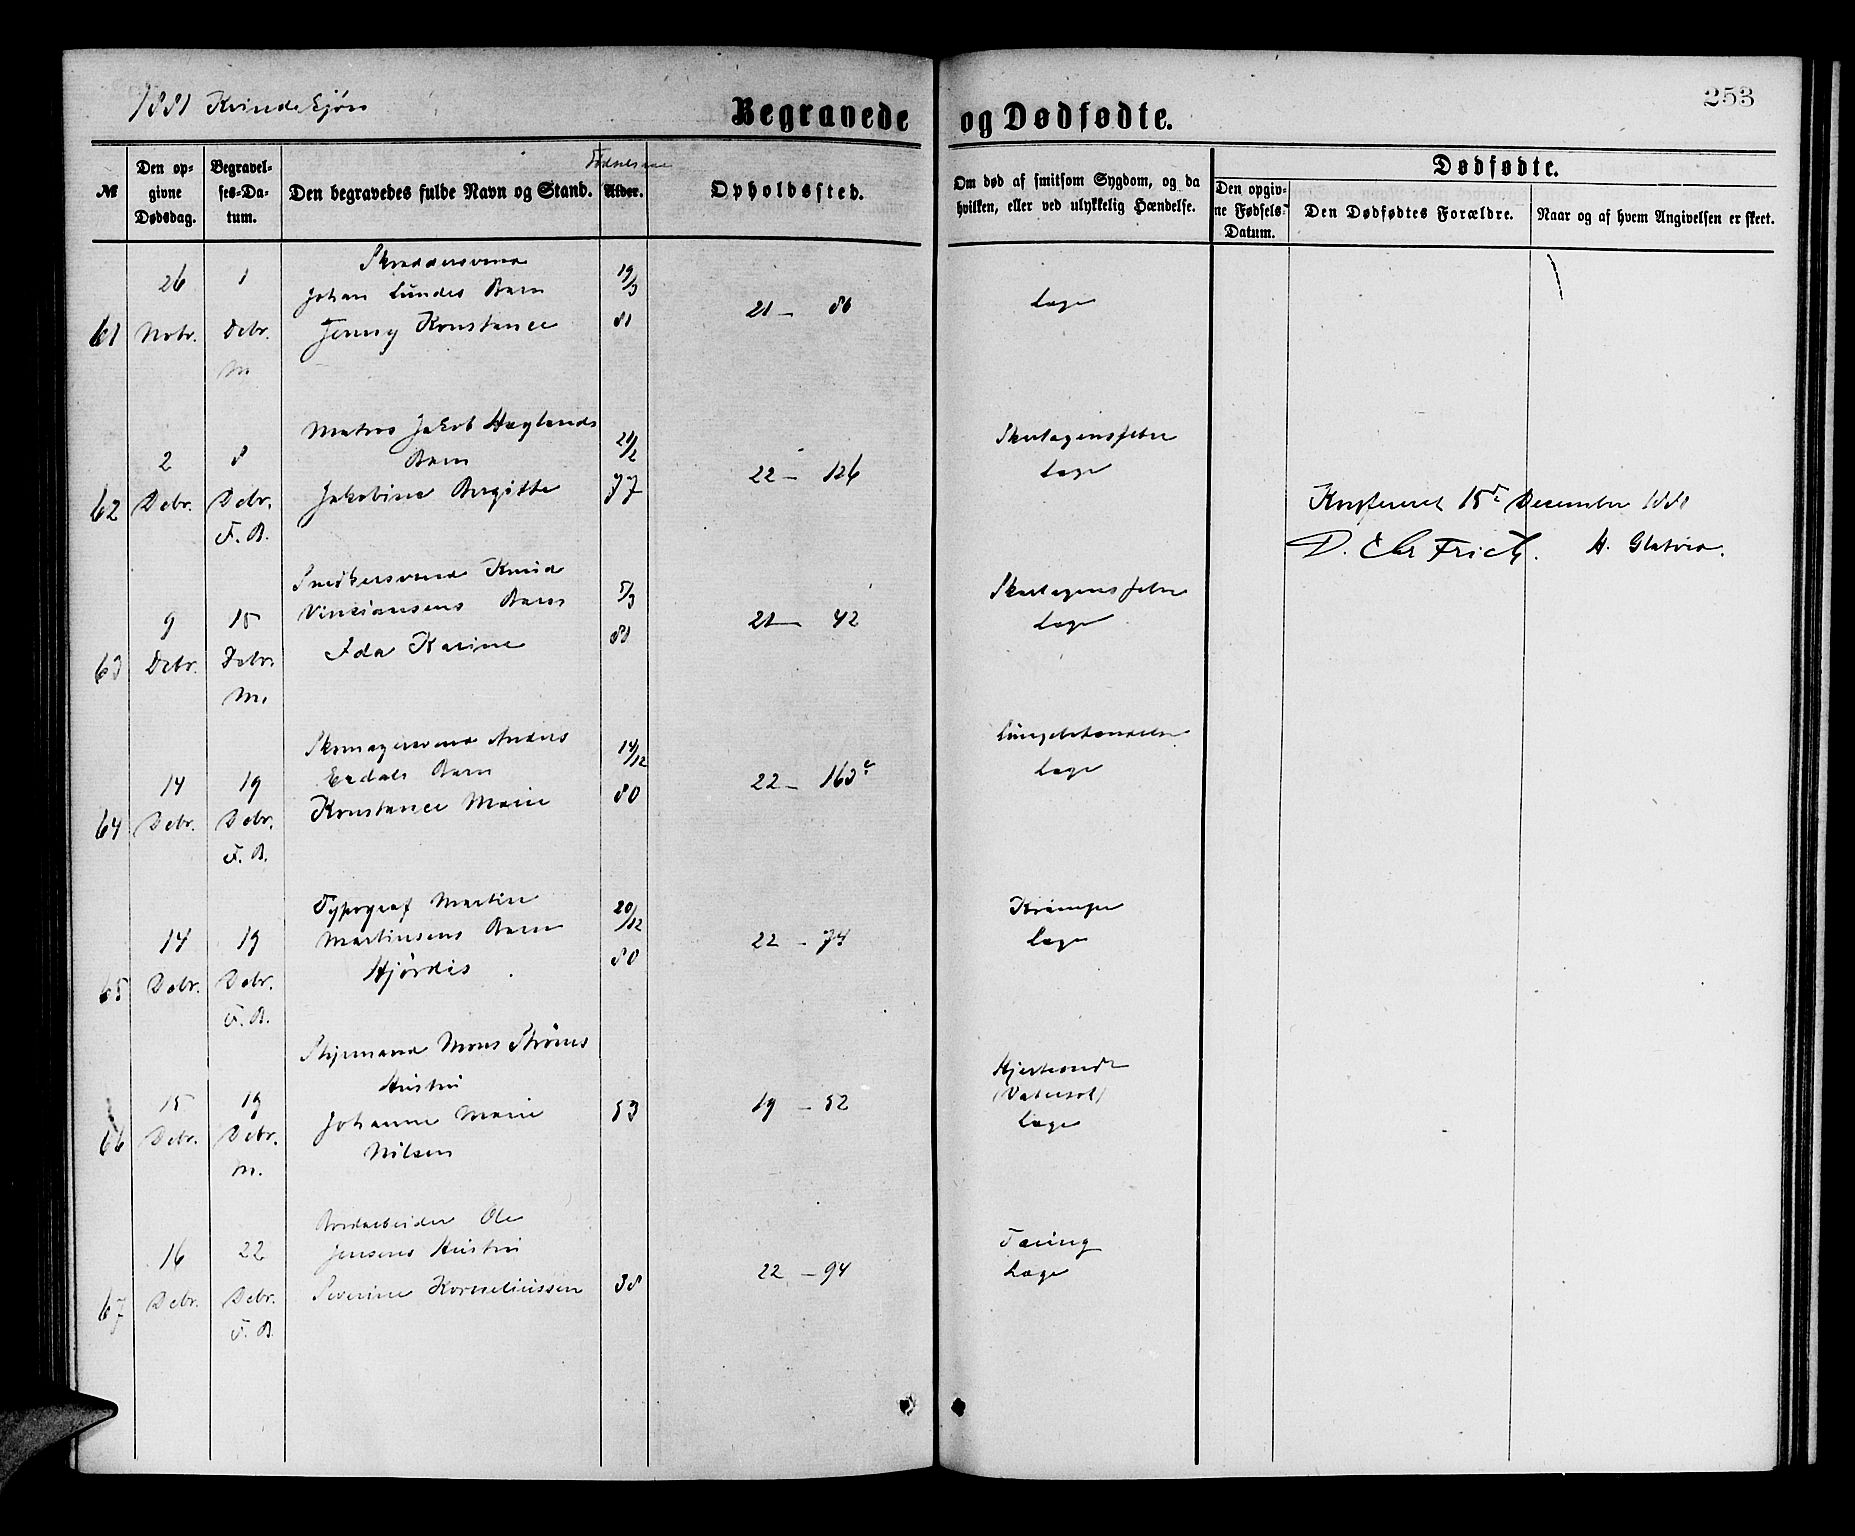 1881 Kvindekjøn
Begravede og Dødfødte.
253
№
Den opgivne Dødsdag.
Begravelses-Datum.
Den begravedes fulde Navn og Stand.
Fødselsaar
Alder.
Opholdssted.
Om død af smitsom Sygdom, og da hvilken, eller ved ulykkelig Hændelse.
Dødfødte.
Den opgivne Fødsels-Datum.
Den Dødfødtes Forældre.
Naar og af hvem Angivelsen er skeet.
61
26 Novbr.
1 Debr. M
Skræddersvend
Johan Lundes Barn
Jenny Konstance
19/3 81
21 - 86
Læge
62
2 Debr.
8 Debr. F. B.
Matros Jakob Høylands
Barn
Jakobine Bergitte
21/2 77
22 - 126
Skarlagensfeber
Læge
Konfereret 15de December 1881
D. Chr Frich. H. Glatved.
63
9 Debr.
15 Debr. M.
Snedkersvend Knud
Barn
Ida Karine
5/3 81
21 - 42
Skarlagensfeber
Læge
64
14 Debr.
19 Debr. F. B.
Skomagersvend Anders
Erdals Barn
Konstance Marie
14/12 80
22 - 163c
Lungebetændelse
Læge
65
14 Debr.
19 Debr. F. B.
Typograf Martin
Martinsens Barn
Hjørdis
20/12 80
22 - 74
Krampe
Læge
66
15 Debr.
19 Debr. M.
Styrmand Mons Strøms
Hustru
Johanne Marie
Nilsen
53
19 - 52
Hjerteonde
(Vatersot)
Læge
67
16 Debr.
22 Debr. F. B
Jordarbeider Ole
Jensens Hustru
Severine Korneliussen
38
22 - 94
Tæring
Læge